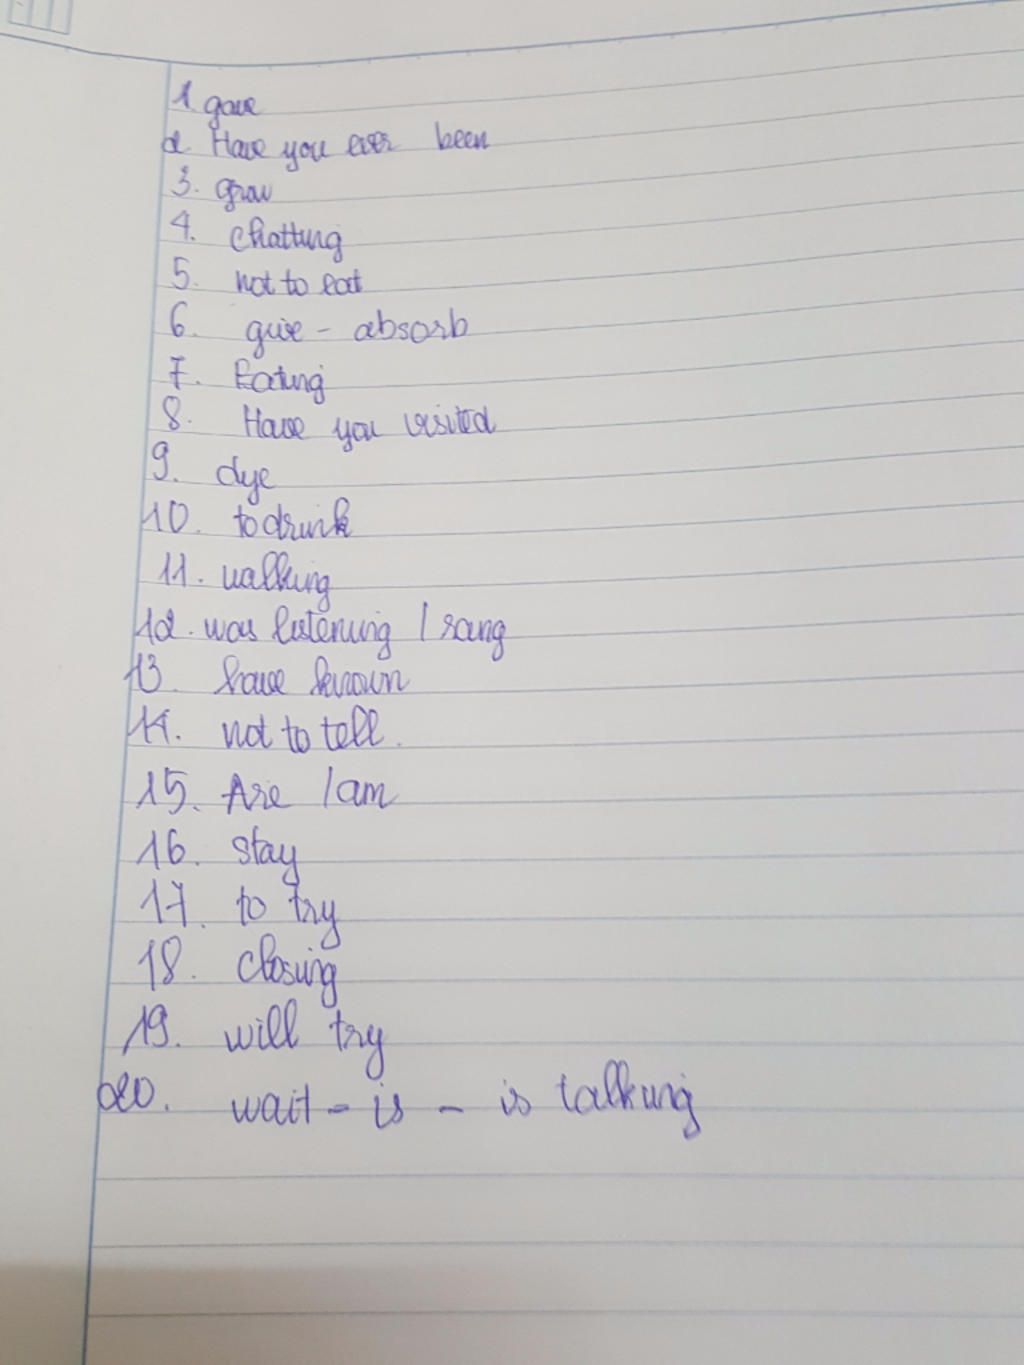 1. gave
2. Have you ever been
3. grow
4. chatting
5. not to eat
6. give - absorb
7. Eating
8. Have you visited
9. dye
10. to drink
11. walking
12. was listening / sang
13. have known
14. not to tell.
15. Are / am
16. stay
17. to try
18. closing
19. will try
20. wait - is - is talking